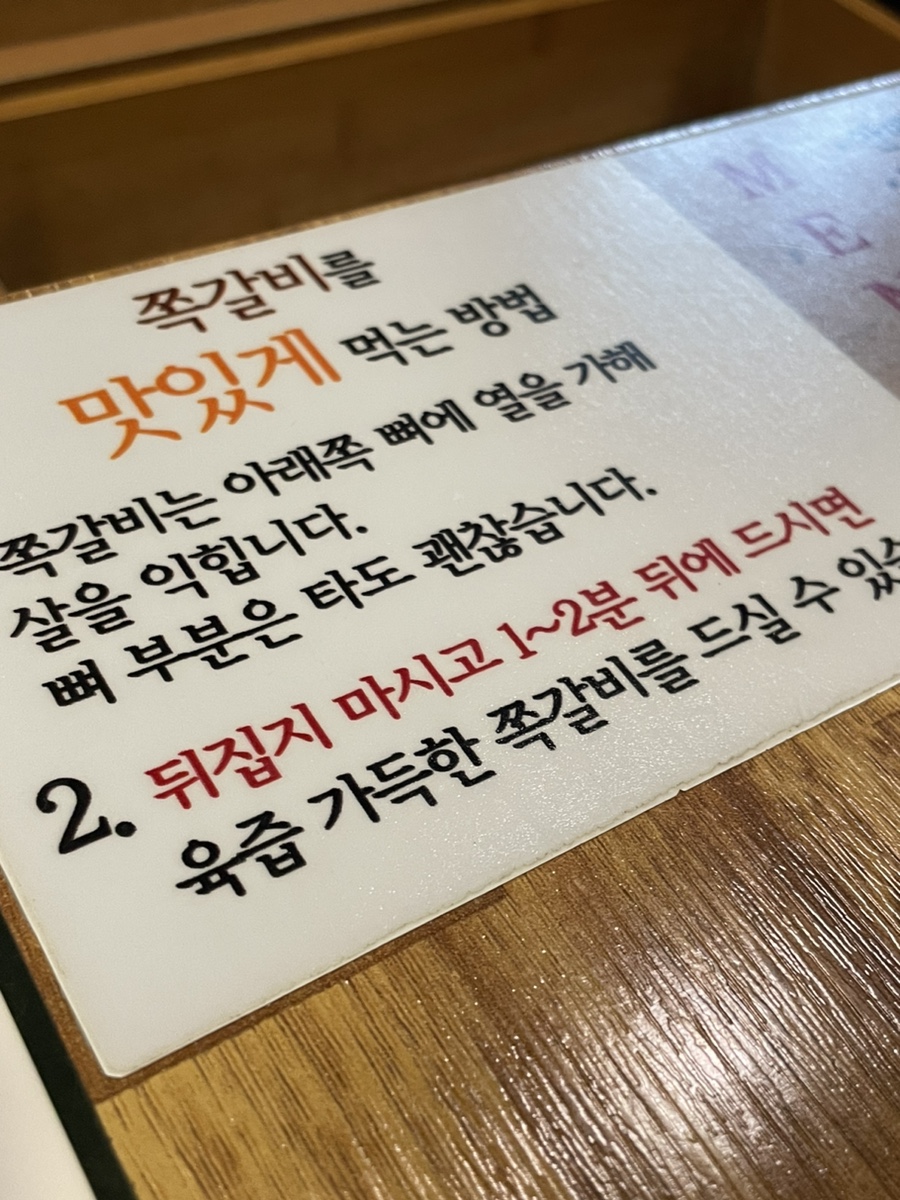 쪽갈비를
맛있게 먹는 방법
쪽갈비는 아래쪽 뼈에 열을 가해
살을 익힙니다.
뼈 부분은 타도 괜찮습니다.
2. 뒤집지 마시고 1~2분 뒤에 드시면
육즙 가득한 쪽갈비를 드실 수
M
E